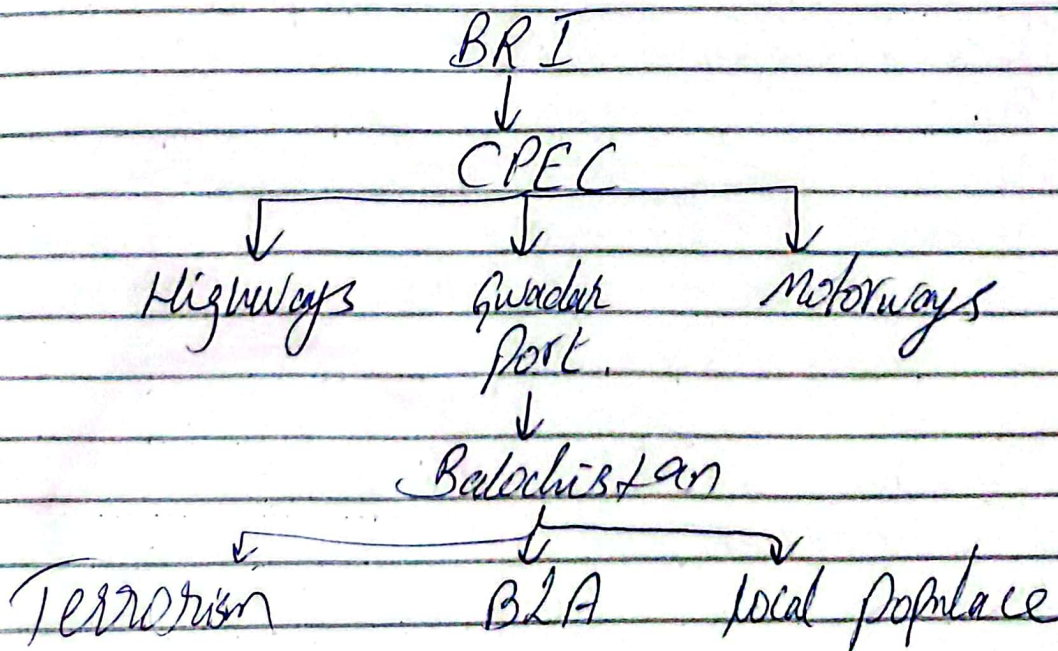 BRI
CPEC
Highways Gwadar Motorways
Port.
Balochistan
Terrorism BLA local populace